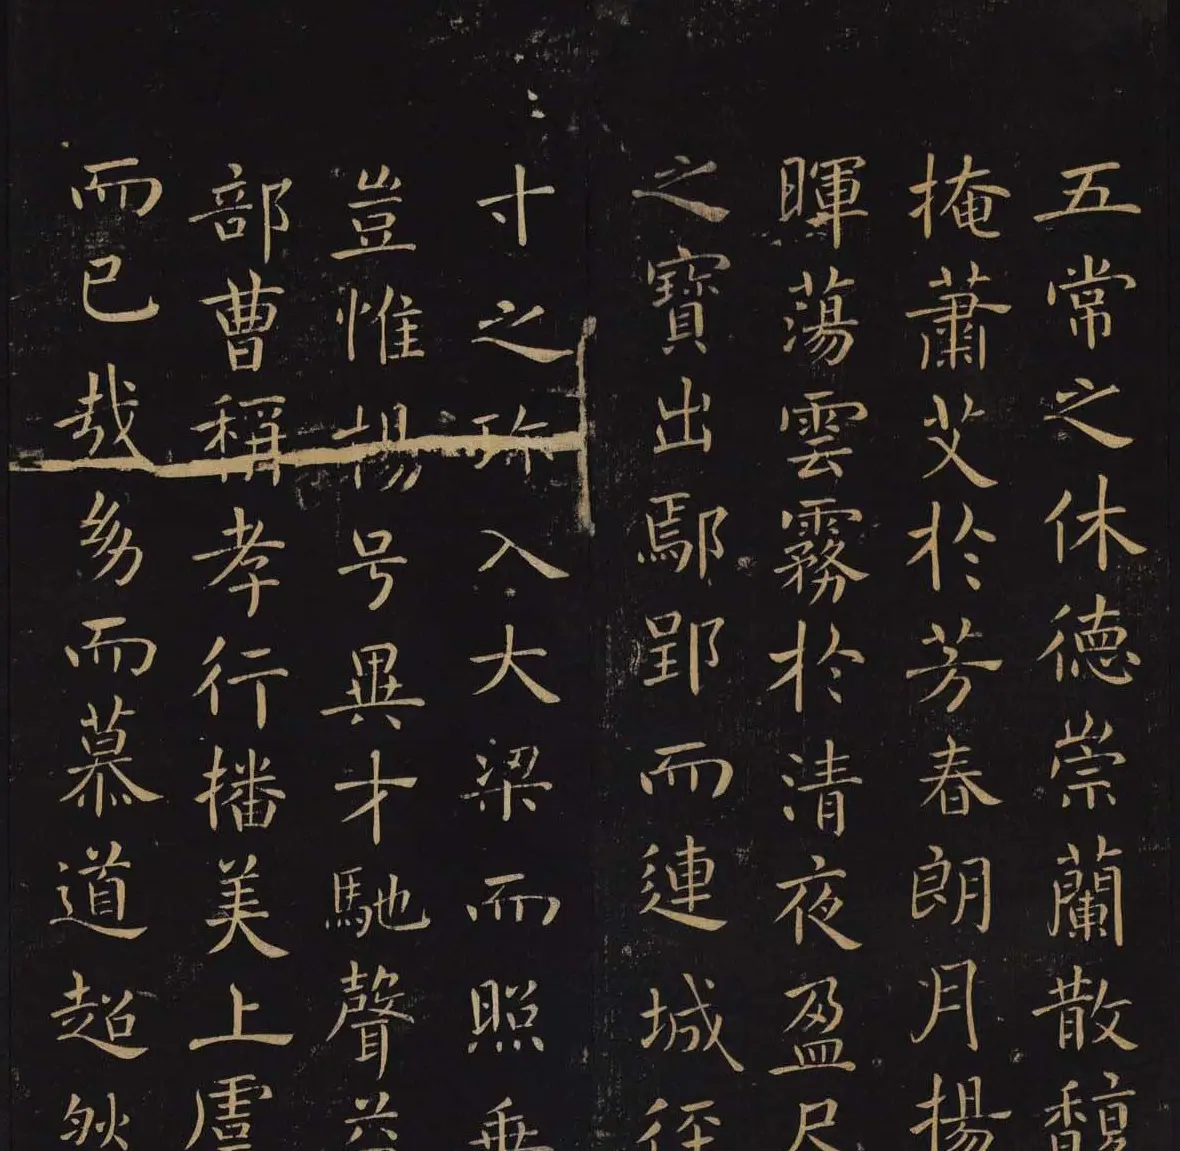 五常之休德崇蘭散馥
掩蕭艾於芳春朗月揚
暉蕩雲霧於清夜盈尺
之寶出鄢郢而連城徑
寸之珎入大梁而照乗
豈惟惕号異才馳聲
部曹稱孝行播美上虞
而已哉幼而慕道超然